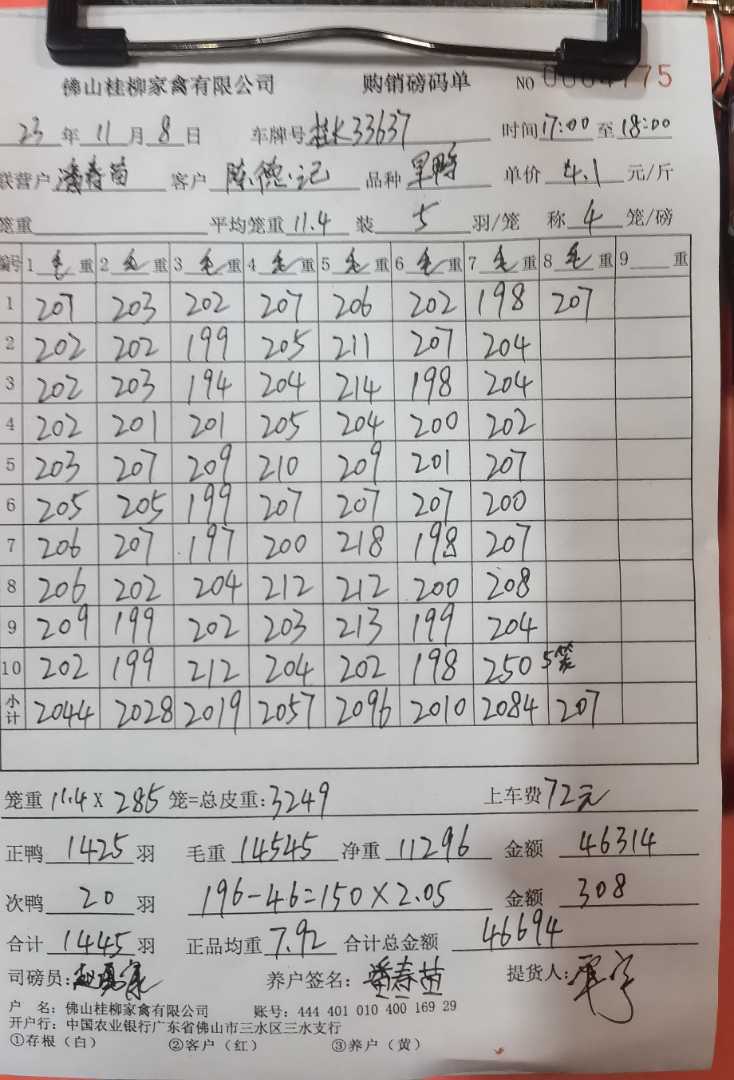 佛山桂柳家禽有限公司 购销磅码单 NO 0004775
23 年 11 月 8 日 车牌号 桂K33637 时间 17:00 至 18:00
联营户 潘寿苗 客户 陈德记 品种 旱鸭 单价 4.1 元/斤
笼重 平均笼重 11.4 装 5 羽/笼 称 4 笼/磅
编号 1 毛 重 2 毛 重 3 毛 重 4 毛 重 5 毛 重 6 毛 重 7 毛 重 8 毛 重 9 重
1 207 203 202 207 206 202 198 207
2 202 202 199 205 211 207 204
3 202 203 194 204 214 198 204
4 202 201 201 205 204 200 202
5 203 207 209 210 209 201 207
6 205 205 199 207 207 207 200
7 206 207 197 200 218 198 207
8 206 202 204 212 212 200 208
9 209 199 202 203 213 199 204
10 202 199 212 204 202 198 250 5笼
小计 2044 2028 2019 2057 2096 2010 2084 207
笼重 11.4 X 285 笼=总皮重:3249 上车费 72元
正鸭 1425 羽 毛重 14545 净重 11296 金额 46314
次鸭 20 羽 196-46=150×2.05 金额 308
合计 1445 羽 正品均重 7.92 合计总金额 46694
司磅员: 养户签名: 潘寿苗 提货人:
户 名: 佛山桂柳家禽有限公司 账号: 444 401 010 400 169 29
开户行: 中国农业银行广东省佛山市三水区三水支行
①存根(白) ②客户(红) ③养户(黄)